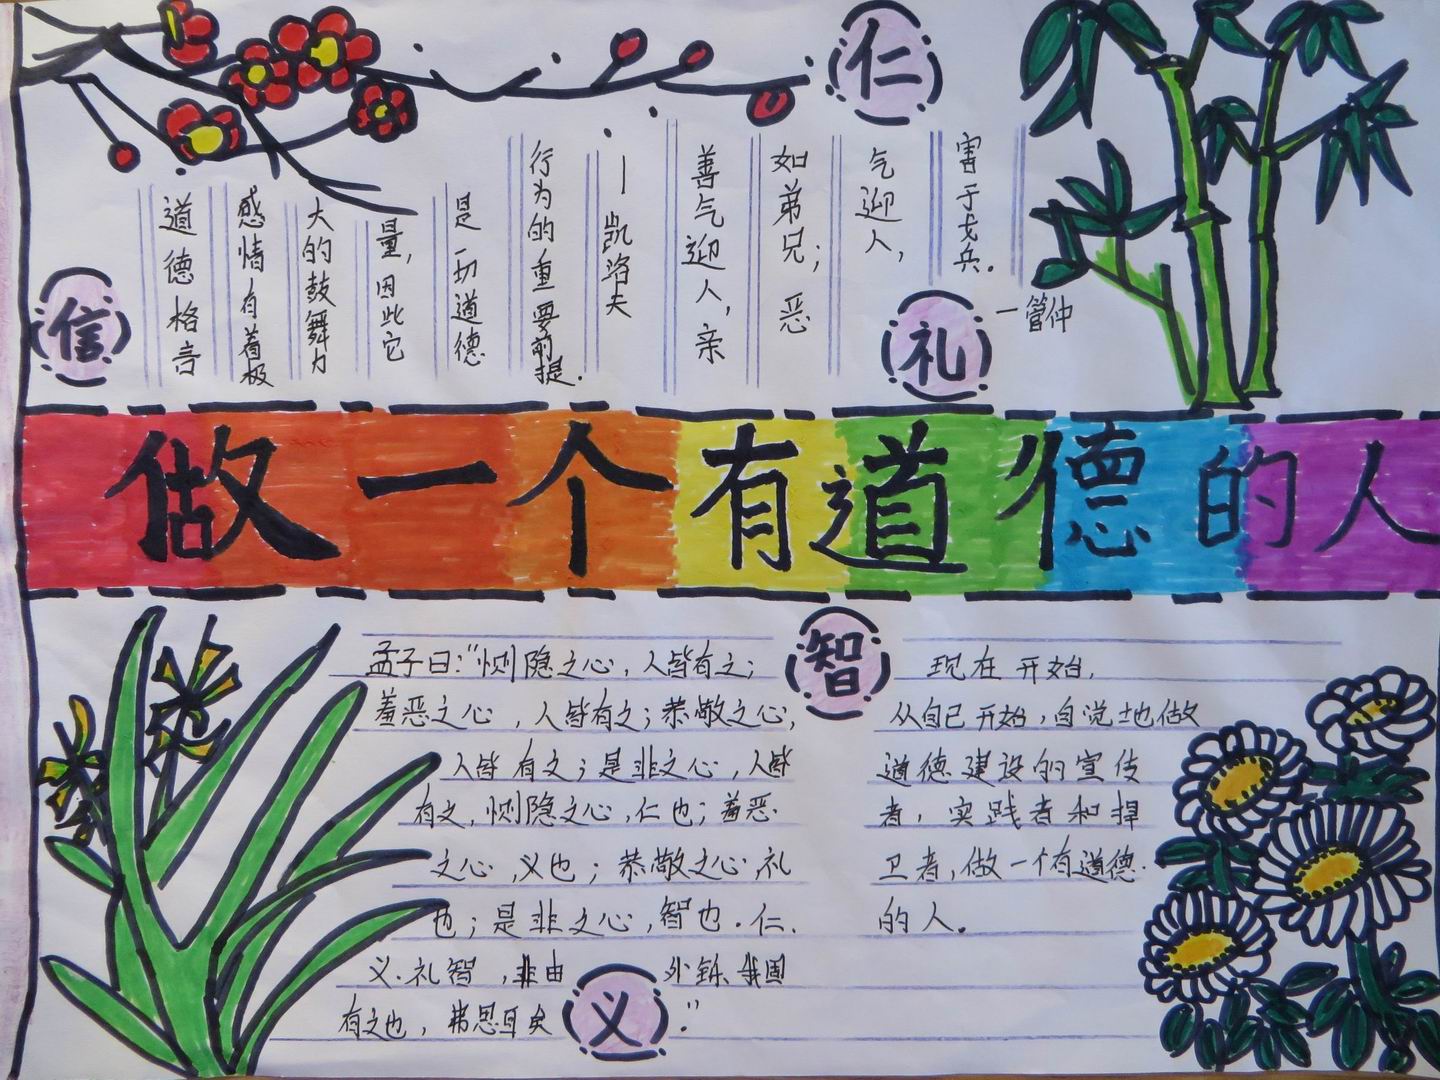 仁
信
礼
道德格言
感情有着极
大的鼓舞力
量，因此它
是一切道德
行为的重要前提.
—凯洛夫
善气迎人，亲
如弟兄；恶
气迎人，
害于戈兵.
—管仲
做一个有道德的人
智
孟子曰:“恻隐之心，人皆有之；
羞恶之心，人皆有之；恭敬之心，
人皆有之；是非之心，人皆
有之，恻隐之心，仁也；羞恶.
之心，义也；恭敬之心，礼
也；是非之心，智也.仁.
义.礼智，非由外铄.我固
有之也，弗思耳矣.”
义
现在开始，
从自己开始，自觉地做
道德建设的宣传
者，实践者和捍
卫者，做一个有道德.
的人.